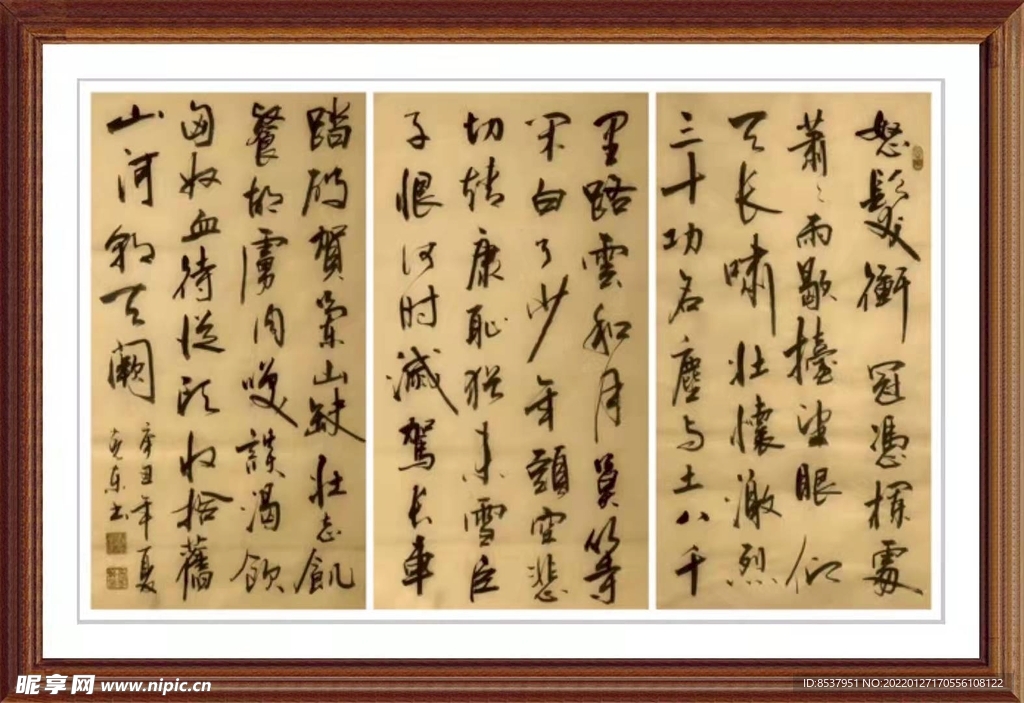 怒髮衝冠憑欄處
蕭々雨歇擡望眼仰
天长嘯壮懷激烈
三十功名塵与土八千
里路雲和月莫等
闲白了少年頭空悲
切靖康恥犹未雪臣
子恨何时滅駕长車
踏破賀蘭山缺壮志飢
餐胡虜肉笑談渴飲
匈奴血待從头收拾舊
山河朝天闕
辛丑年夏
东书
昵享网 www.nipic.cn
ID:8537951 NO:20220127170556108122